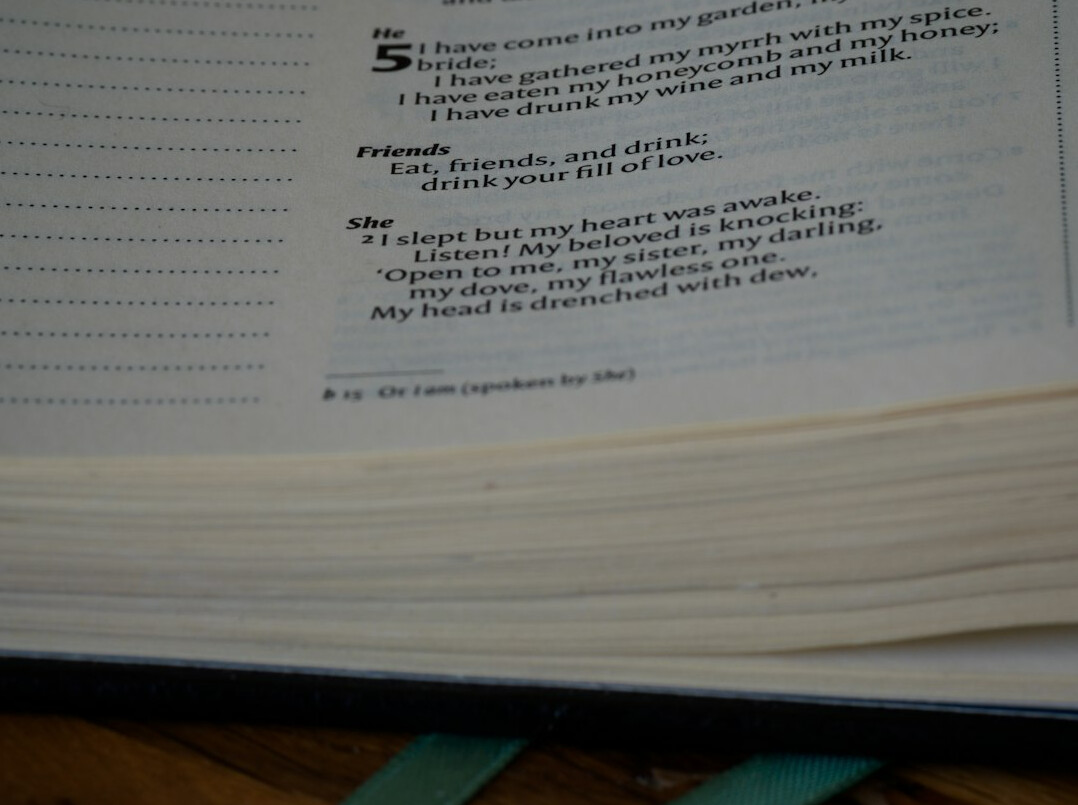 He
5 I have come into my garden,
bride;
I have gathered my myrrh with my spice.
I have eaten my honeycomb and my honey;
I have drunk my wine and my milk.
Friends
Eat, friends, and drink;
drink your fill of love.
She
2 I slept but my heart was awake.
Listen! My beloved is knocking:
‘Open to me, my sister, my darling,
my dove, my flawless one.
My head is drenched with dew,
b 15 Or I am (spoken by She)